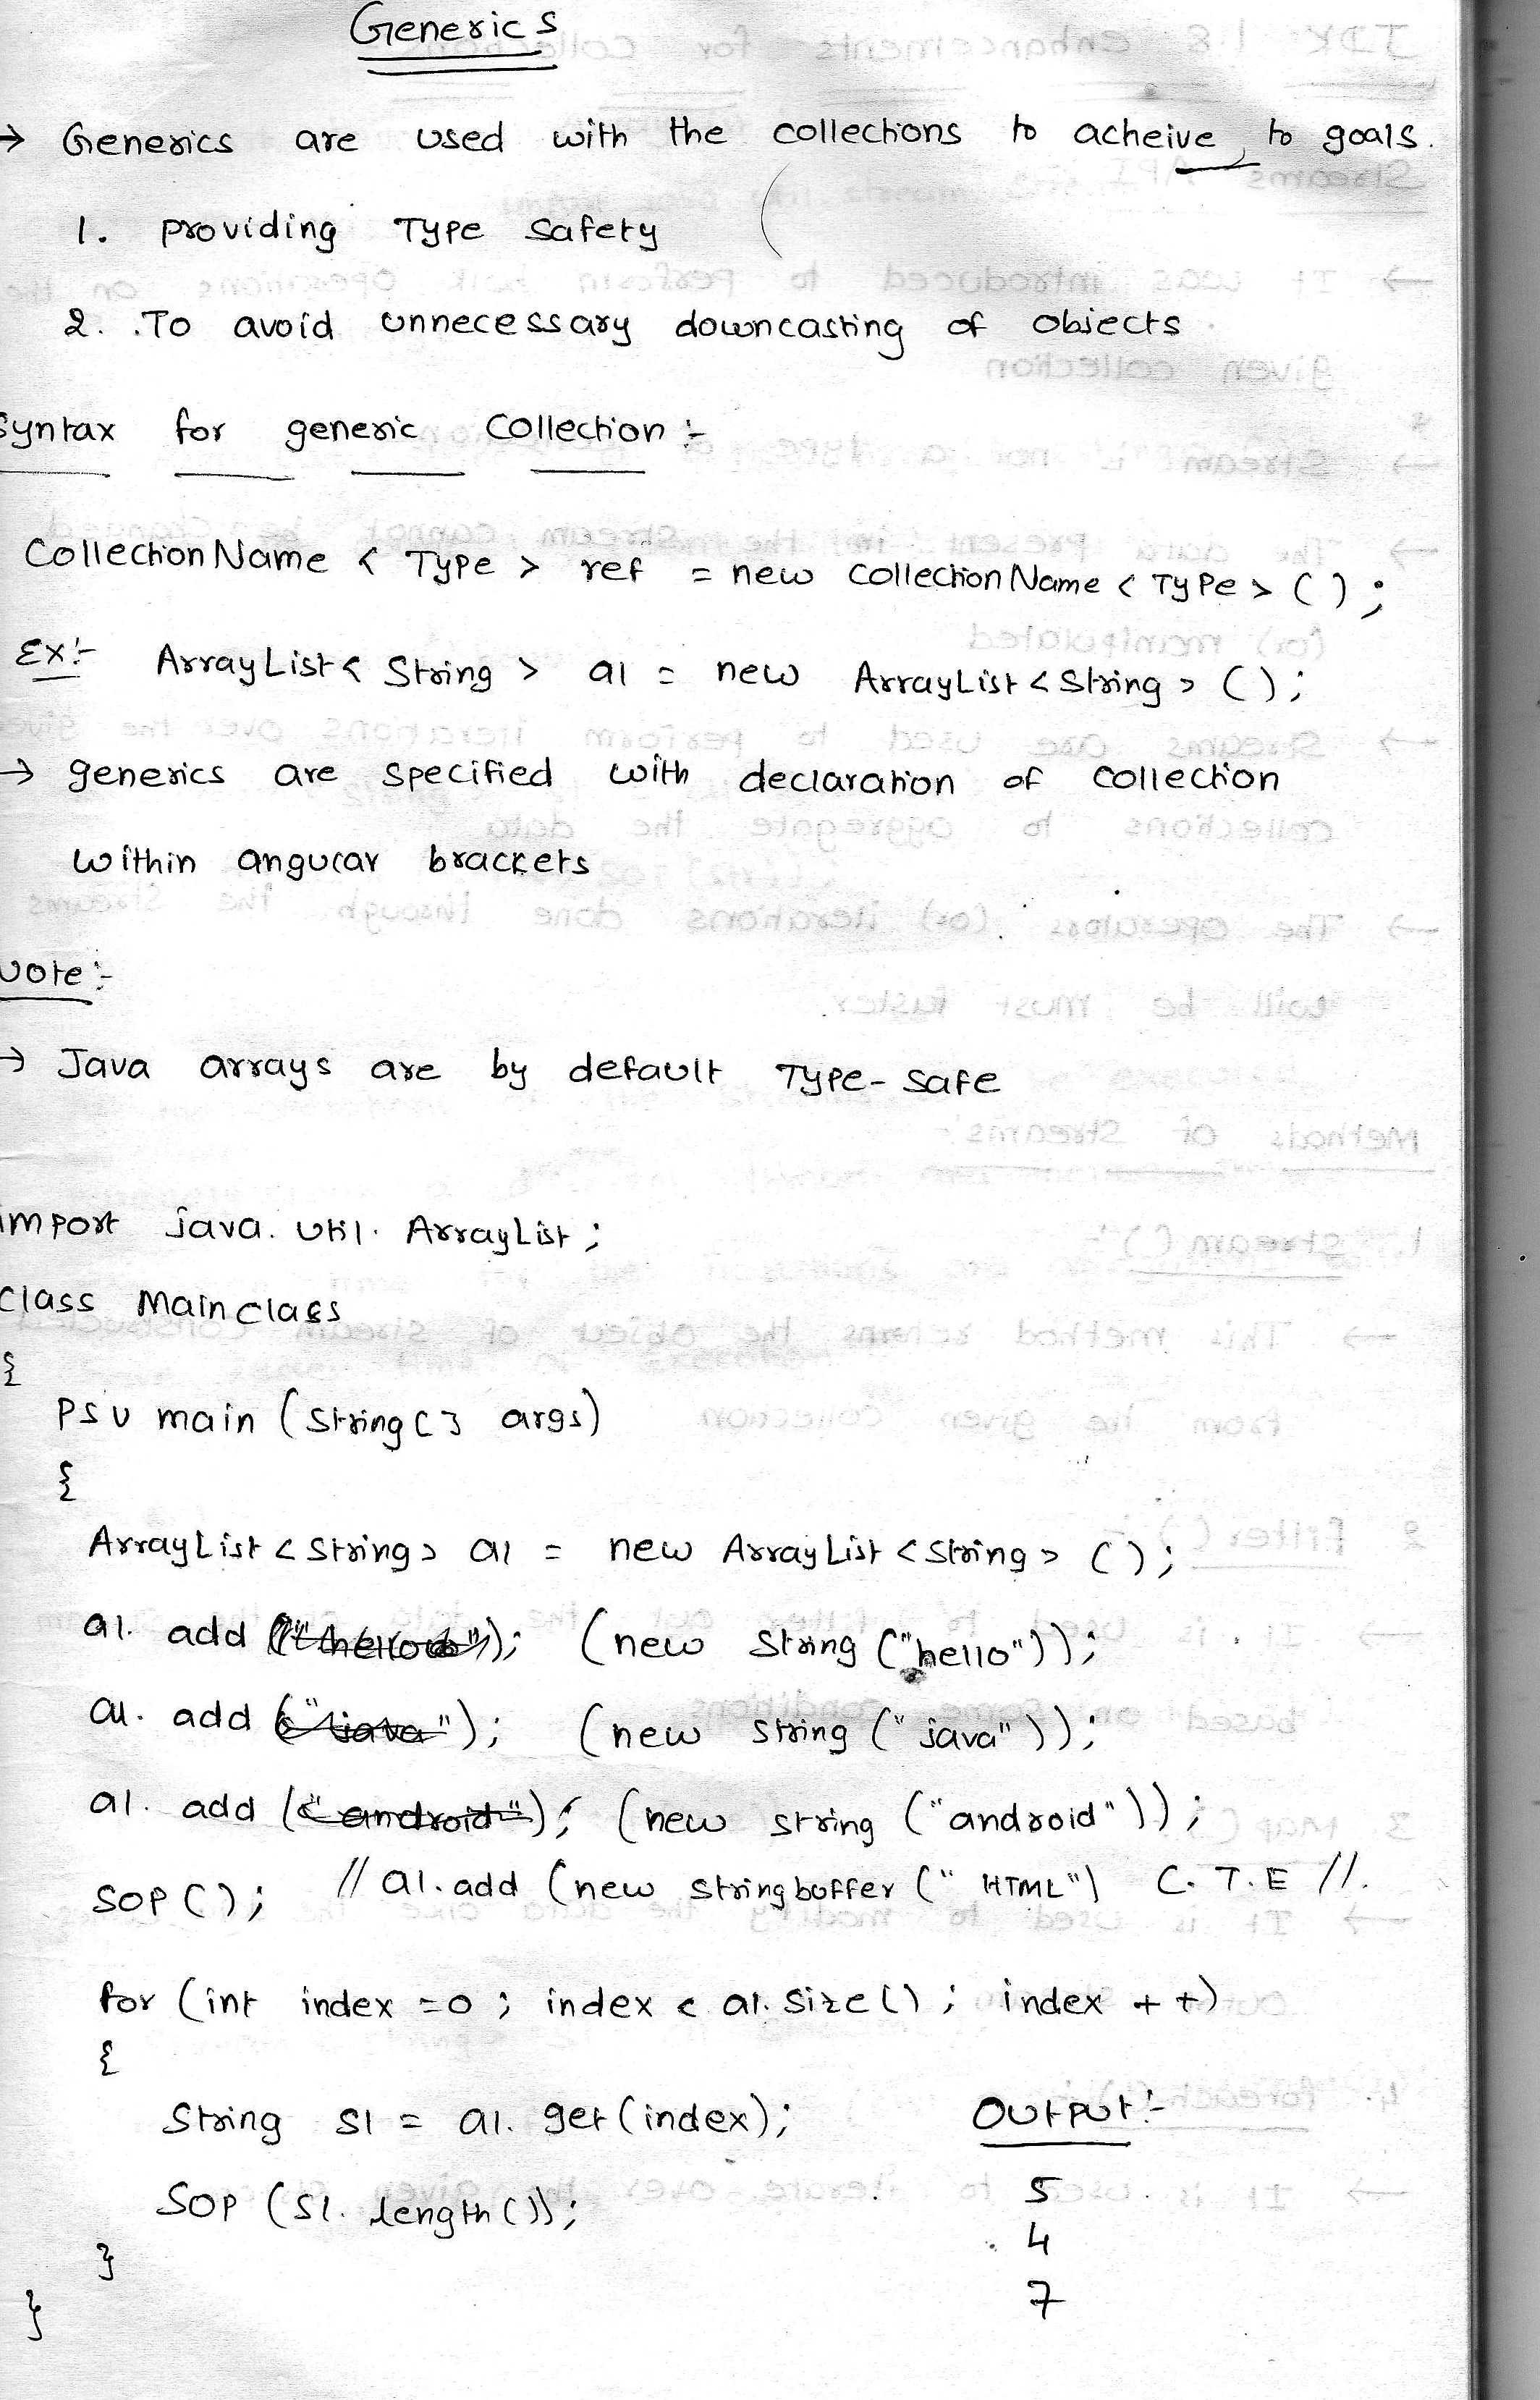 Generics
→ Generics are used with the collections to acheive to goals.
1. providing Type safety
2. .To avoid unnecessary downcasting of objects
Syntax for generic collection :-
Collection Name < Type > ref = new collection Name < Type > ( ) ;
Ex:- ArrayList < String > al = new ArrayList < String > ( ) ;
→ generics are specified with declaration of collection
within angular brackets
Note :-
→ Java arrays are by default Type-safe
import java. util. ArrayList ;
Class Mainclass
{
psv main ( string [ ] args )
{
ArrayList < string > al = new ArrayList < string > ( ) ;
al. add ("hello"); (new string ("hello"));
al. add ("java"); (new string ("java"));
al. add ("android"); (new string ("android"));
SOP ( ) ; // al.add (new stringbuffer (" HTML") C.T.E //.
for (int index = 0 ; index < al. size ( ) ; index + +)
{
String s1 = al. get (index);
Output :-
SOP (s1. length ( ));
5
4
}
7
}